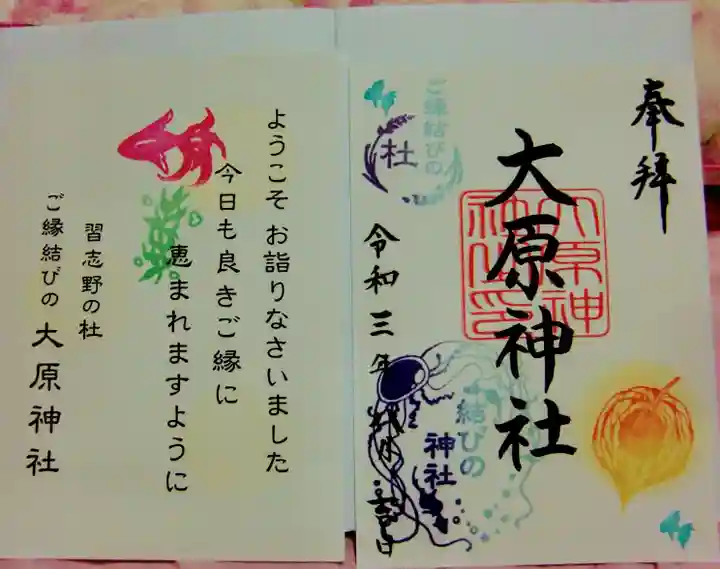 奉拝
大原神社
大原神
社之印
ご縁結びの
杜
令和三年
結びの
神社
ようこそ お詣りなさいました
今日も良きご縁に
恵まれますように
習志野の杜
ご縁結びの 大原神社